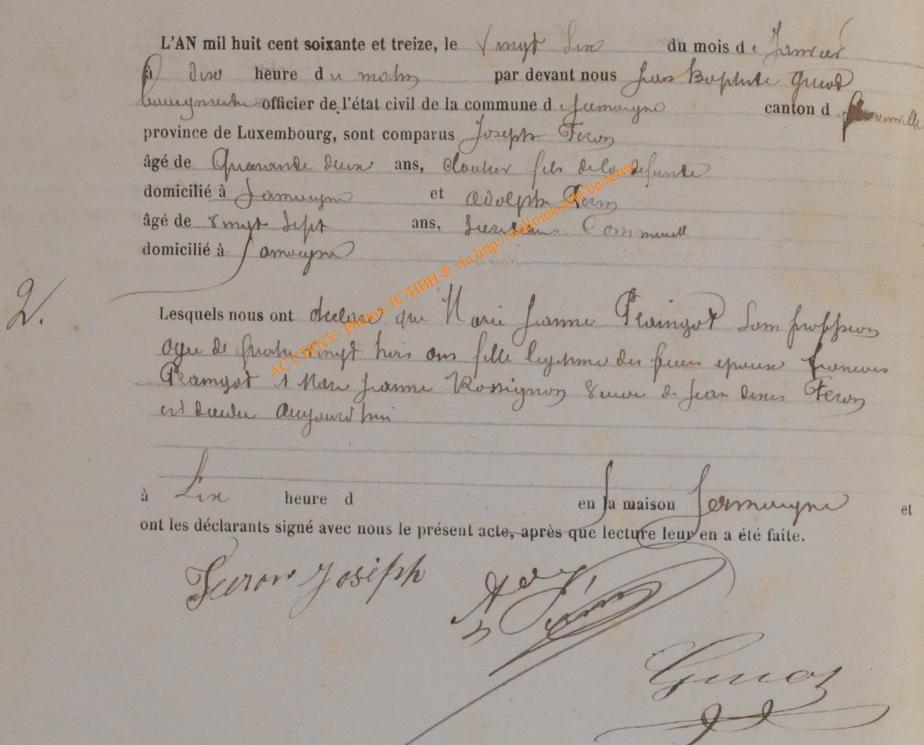 L'AN mil huit cent soixante et treize, le Vingt Six du mois de Janvier
à dix heure du matin par devant nous Jean Baptiste Genot
bourgmestre officier de l'état civil de la commune d Jamoigne canton d
province de Luxembourg, sont comparus Joseph Feron
âgé de Quarante deux ans, Cloutier fils de la defunte
domicilié à Jamoigne et Adolphe
âgé de vingt Sept ans, Secretaire Communal
domicilié à Jamoigne
2.
Lesquels nous ont declaré que Marie Jeanne Sans profession
agée de Quatre vingt trois ans fille legitime des feux epoux francois
Marie Jeanne Rossignon veuve de Jean Feron
est decedee aujourd'hui
à Six heure d en sa maison Jamoigne et
ont les déclarants signé avec nous le présent acte, après que lecture leur en a été faite.
Feron Joseph
Genot
AC CHINY - Photos JC/HBH ® via http://wallonia-asbl.be-actes